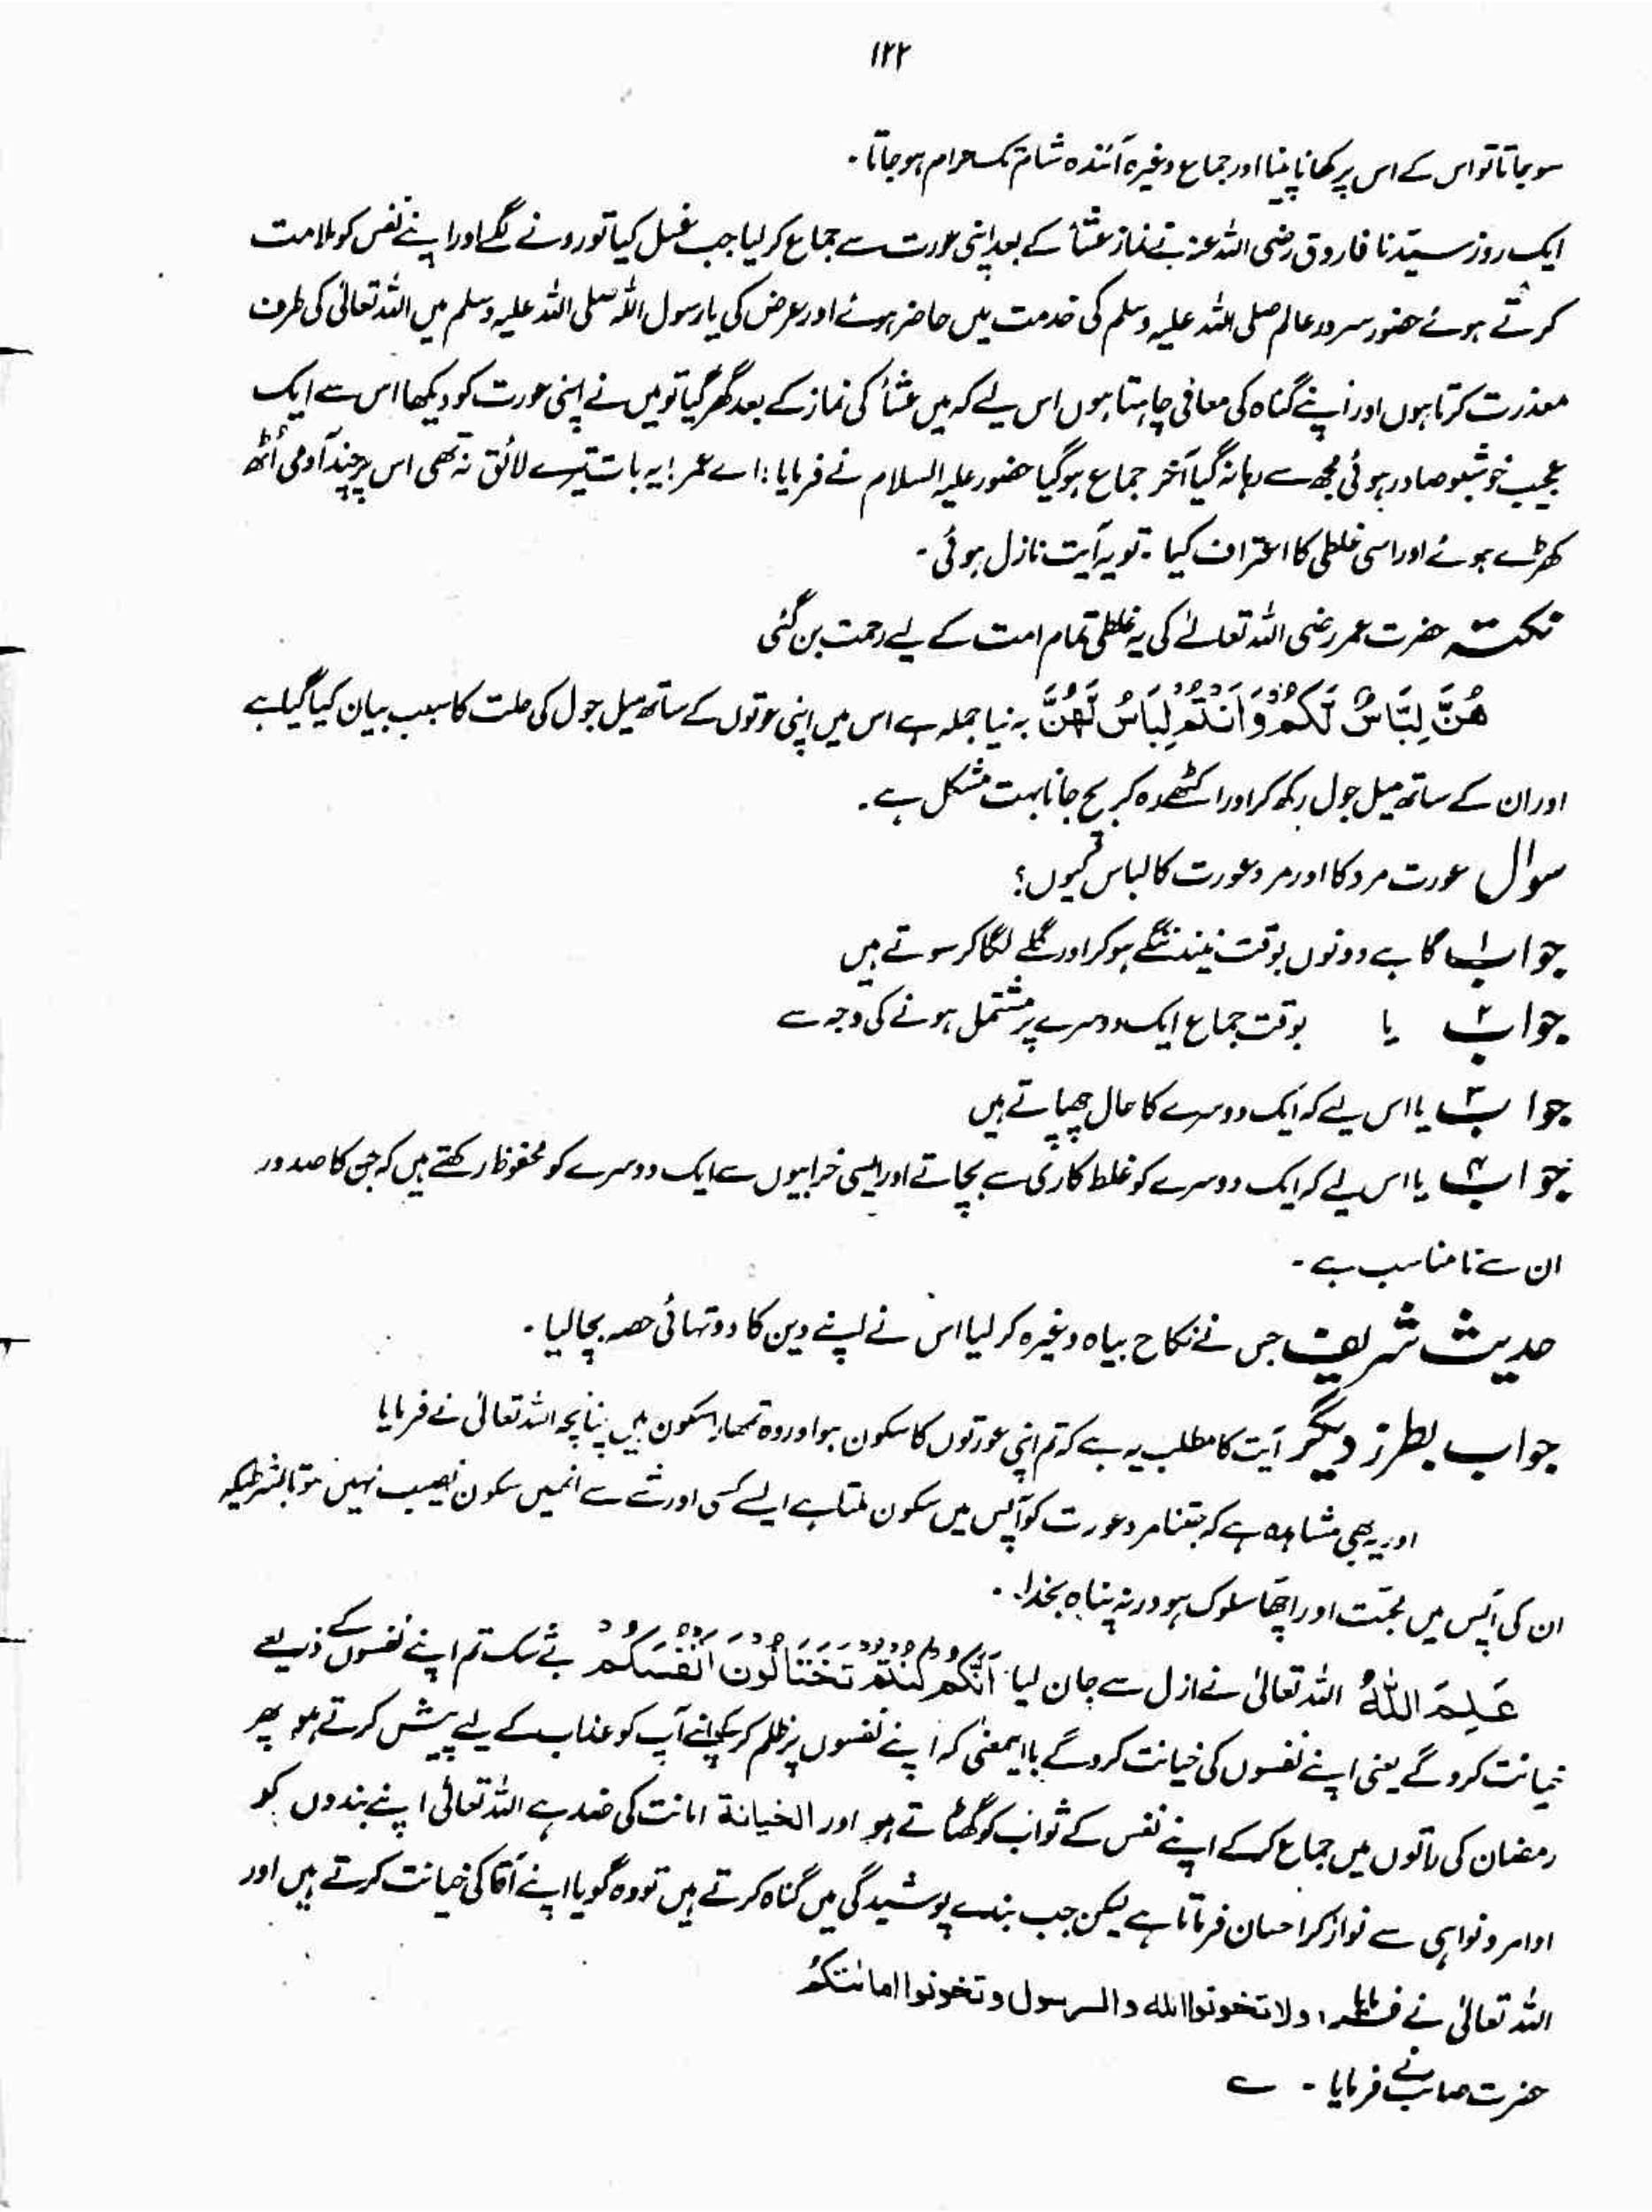 ۱۲۲
سوجاتا تو اس کے اس پر کھانا پینا اور جماع وغیرہ آئندہ شام تک حرام ہوجاتا۔
ایک روز سیّدنا فاروق رضی اللہ عنہ نے نماز عشاً کے بعد اپنی عورت سے جماع کرلیا جب غسل کیا تو رونے لگے اور اپنے نفس کو ملامت
کرتے ہوئے حضور سرور عالم صلی اللہ علیہ وسلم کی خدمت میں حاضر ہوئے اور عرض کی یا رسول اللہ صلی اللہ علیہ وسلم میں اللہ تعالٰی کی طرف
معذرت کرتا ہوں اور اپنے گناہ کی معافی چاہتا ہوں اس لیے کہ میں عشاً کی نماز کے بعد گھر گیا تو میں نے اپنی عورت کو دیکھا اس سے ایک
عجیب خوشبو صادر ہوئی مجھ سے رہا نہ گیا آخر جماع ہوگیا حضور علیہ السلام نے فرمایا: اے عمر! یہ بات تیرے لائق نہ تھی اس پر چند آدمی اُٹھ
کھڑے ہوئے اور اسی غلطی کا اعتراف کیا۔ تو یہ آیت نازل ہوئی۔
نکتہ حضرت عمر رضی اللہ تعالےٰ کی یہ غلطی تمام امت کے لیے رحمت بن گئی
هُنَّ لِبَاسٌ لَّكُمْ وَاَنْتُمْ لِبَاسٌ لَّهُنَّ یہ نیا جملہ ہے اس میں اپنی عورتوں کے ساتھ میل جول کی حلت کا سبب بیان کیا گیا ہے
اور ان کے ساتھ میل جول رکھ کر اور اکٹھے رہ کر بچ جانا بہت مشکل ہے۔
سوال عورت مرد کا اور مرد عورت کا لباس کیوں؟
جواب ۱ گاہے دونوں بوقت نیند ننگے ہوکر اور گلے لگا کر سوتے ہیں
جواب ۲ یا بوقت جماع ایک دوسرے پر مشتمل ہونے کی وجہ سے
جواب ۳ یا اس لیے کہ ایک دوسرے کا حال چھپاتے ہیں
جواب ۴ یا اس لیے کہ ایک دوسرے کو غلط کاری سے بچاتے اور ایسی خرابیوں سے ایک دوسرے کو محفوظ رکھتے ہیں کہ جن کا صدور
ان سے نامناسب ہے۔
حدیث شریف جس نے نکاح بیاہ وغیرہ کرلیا اس نے اپنے دین کا دو تہائی حصہ بچالیا۔
جواب بطرز دیگر آیت کا مطلب یہ ہے کہ تم اپنی عورتوں کا سکون ہو اور وہ تمھارا سکون ہیں چنانچہ اللہ تعالیٰ نے فرمایا
اور یہ بھی مشاہدہ ہے کہ جتنا مرد عورت کو آپس میں سکون ملتا ہے ایسے کسی اور شے سے انھیں سکون نصیب نہیں ہوتا بشرطیکہ
ان کی آپس میں محبّت اور اچھا سلوک ہو ورنہ پناہ بخدا۔
عَلِمَ اللّٰهُ اللہ تعالیٰ نے ازل سے جان لیا اَنَّكُمْ كُنْتُمْ تَخْتَانُوْنَ اَنْفُسَكُمْ بے شک تم اپنے نفسوں کے ذریعے
خیانت کروگے یعنی اپنے نفسوں کی خیانت کروگے بایمعنیٰ کہ اپنے نفسوں پر ظلم کرکے اپنے آپ کو عذاب کے لیے پیش کرتے ہو پھر
رمضان کی راتوں میں جماع کرکے اپنے نفس کے ثواب کو گھٹاتے ہو اور الخیانة امانت کی ضد ہے اللہ تعالٰی اپنے بندوں کو
اوامر و نواہی سے نواز کر احسان فرماتا ہے لیکن جب بندے پوشیدگی میں گناہ کرتے ہیں تو وہ گویا اپنے آقا کی خیانت کرتے ہیں اور
اللہ تعالیٰ نے فرمایا: ولا تخونوا الله والرسول وتخونوا امانٰتکم
حضرت صائب نے فرمایا۔ ے